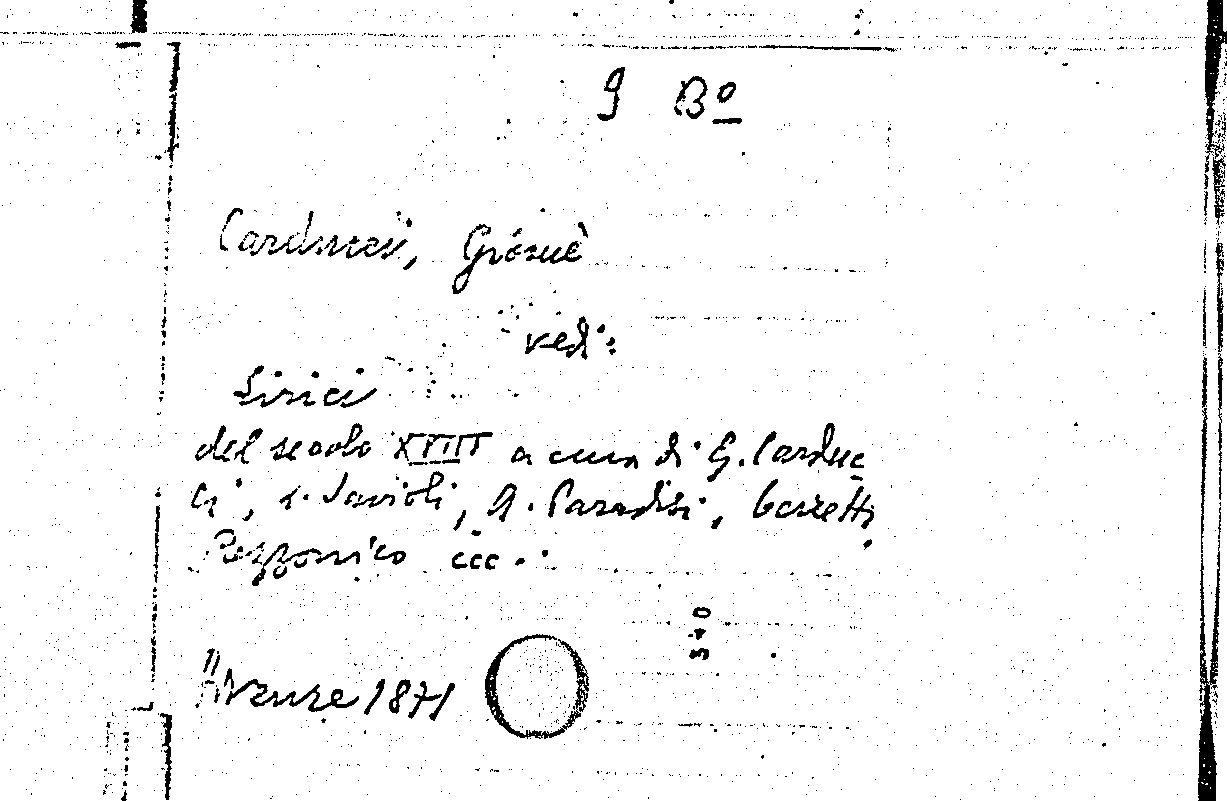 9 Bo
Carducci, Giosuè
vedi:
Lirici
del secolo XVIII a cura di G. Carduc
ci, L. Savioli, A. Paradisi, Cerretti
Rezzonico ecc.
540
Firenze 1871